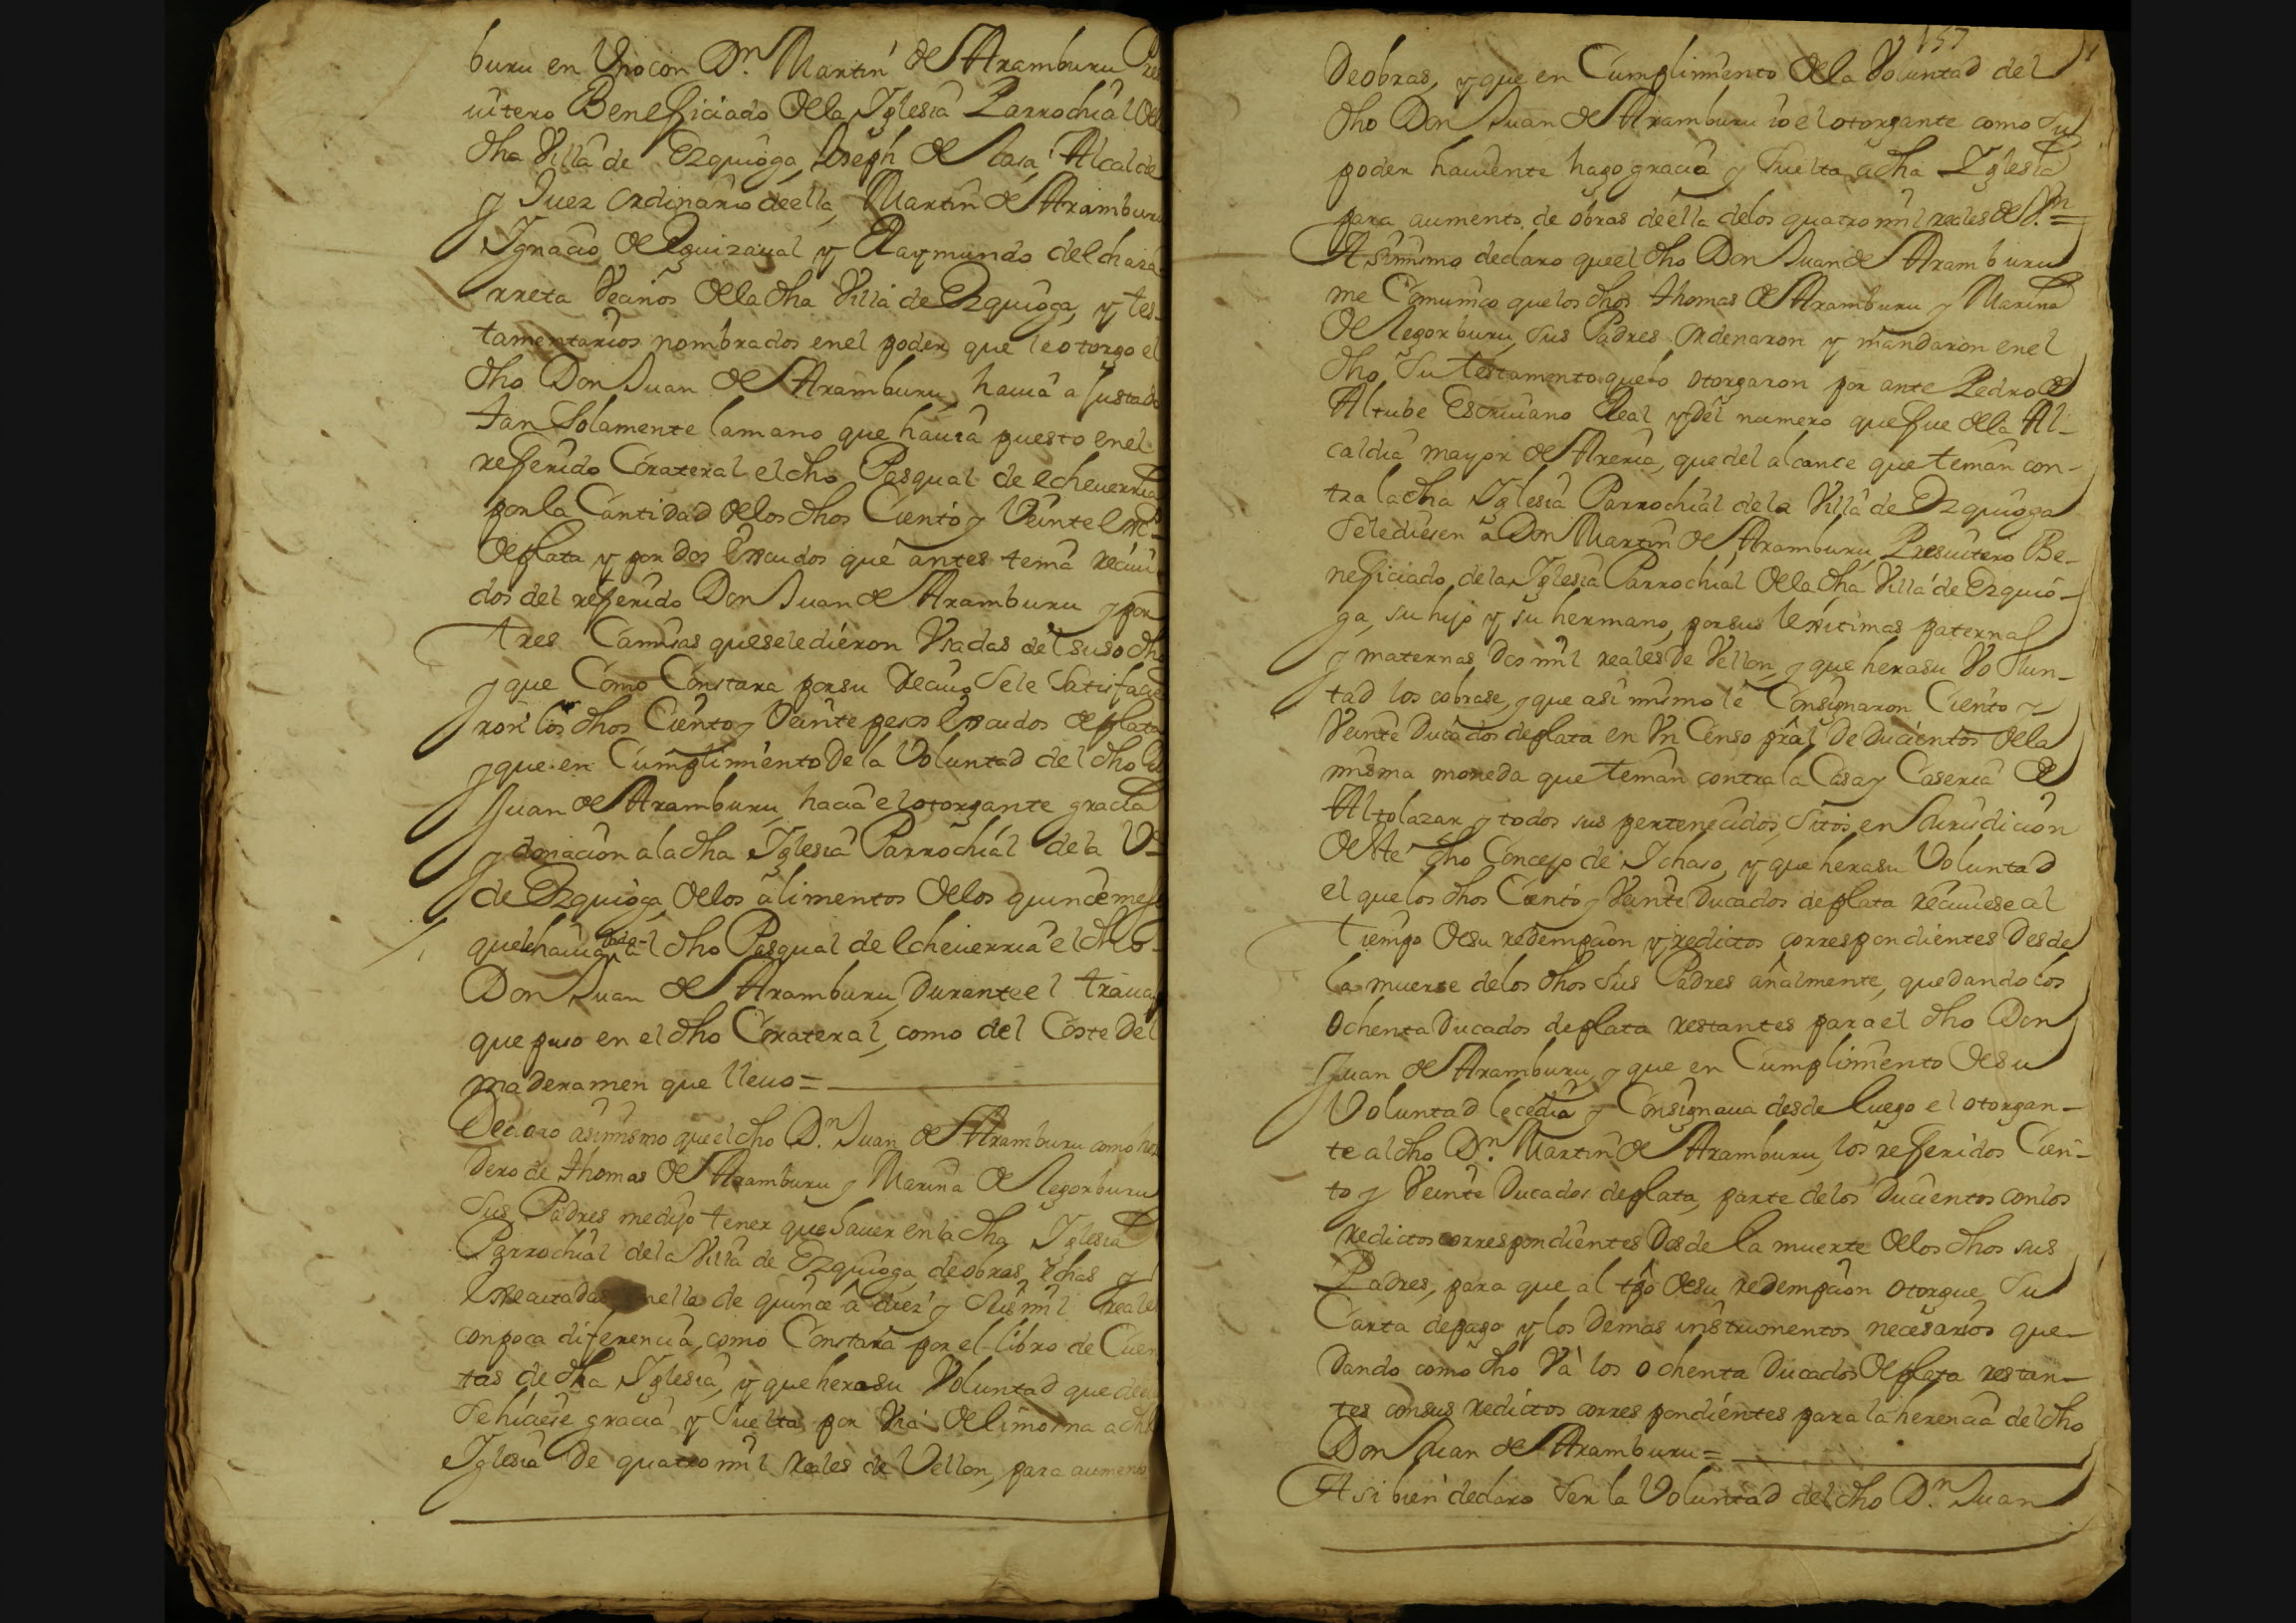 buru en Vno con Dn. Martin de Aramburu Pres
uitero Beneficiado de la Iglesia Parrochial de
dha Villa de Ezquioga, Joseph de Alcalde
y Juez ordinario de ella, Martin de Aramburu
Ignacio de Eguizaual y Raymundo de Echaza
rreta Vecinos de la dha Villa de Ezquioga, y tes-
tamentarios nombrados en el poder que le otorgo el
dho Don Juan de Aramburu, hauia ajustado
tan Solamente la mano que hauia puesto en el
referido Corateral el dho Pasqual de Echeuerria
por la Cantidad de los dhos Ciento y Veinte
de plata y por dos escudos que antes tenia reciui
dos del referido Don Juan de Aramburu y por
tres Camisas que se le dieron Vsadas del suso dho
y que Como Constara por su Reciuo Se le Satisfacie
ron los dhos Ciento y Veinte pesos escudos de plata
y que en Cumplimiento de la Voluntad del dho
Juan de Aramburu, hacia el otorgante gracia
y donacion a la dha Iglesia Parrochial de la Va
de Ezquioga, de los alimentos de los quince meses
que le hauia dado al dho Pasqual de Echeuerria el dho
Don Juan de Aramburu, durante el trauajo
que puso en el dho Corateral, como del Coste del
maderamen que lleuo =
Declaro asimismo que el dho Dn. Juan de Aramburu como here
dero de thomas de Aramburu y Marina de Legorburu
Sus Padres me dijo tener que hauer en la dha Iglesia
Parrochial de la Villa de Ezquioga, de obras echas y
en ella de quince a diez y Seis mil reales
con poca diferencia, como Constara por el libro de Cuen
tas de dha Iglesia, y que hera su Voluntad que de ello
Se hiciese gracia y Suelta por Via de limosna a dha
Iglesia de quatro mil Reales de Vellon, para aumento
157
de obras, y que en Cumplimiento de la Voluntad del
dho Don Juan de Aramburu io el otorgante como Su
poder hauiente hago gracia y Suelta a dha Iglesia
para aumento de obras de ella de los quatro mil reales de Vn. =
Asimismo declaro que el dho Don Juan de Aramburu
me Comunico que los dhos thomas de Aramburu y Marina
de Legorburu, Sus Padres ordenaron y mandaron en el
dho Su testamento que lo otorgaron por ante Pedro de
Altube Escriuano Real y del numero que fue de la Al-
caldia mayor de Areria, que del alcance que tenian con-
tra la dha Iglesia Parrochial de la Villa de Ezquioga
Se le diesen a Don Martin de Aramburu Presuitero Be-
neficiado de la Iglesia Parrochial de la dha Villa de Ezquio-
ga, su hijo y su hermano, por sus lexitimas paternas
y maternas dos mil reales de Vellon, y que hera su Volun-
tad los cobrase, y que asi mismo le Consignaron Ciento y
Veinte Ducados de plata en Vn Censo pral de Ducientos de la
misma moneda que tenian contra la Casa y Caseria de
Altolazar y todos sus pertenecidos, Sitos en Jurisdicion
de este dho Concejo de Ichaso, y que hera su Voluntad
el que los dhos Ciento y Veinte Ducados de plata reciuiese al
tiempo de su redempcion y redictos correspondientes desde
la muerte de los dhos Sus Padres añalmente, quedando los
ochenta Ducados de plata restantes para el dho Don
Juan de Aramburu, y que en Cumplimiento de su
Voluntad le cedia y Consignaua desde luego el otorgan-
te al dho Dn. Martin de Aramburu, los referidos Cien-
to y Veinte Ducados de plata, parte de los Ducientos con los
redictos correspondientes desde la muerte de los dhos sus
Padres, para que al tpo de su redempcion otorgue Su
Carta de pago y los demas instrumentos necesarios que-
dando como dho Va los ochenta Ducados de plata restan-
tes con sus redictos correspondientes para la herencia del dho
Don Juan de Aramburu =
Asi bien declaro Ser la Voluntad del dho Dn. Juan